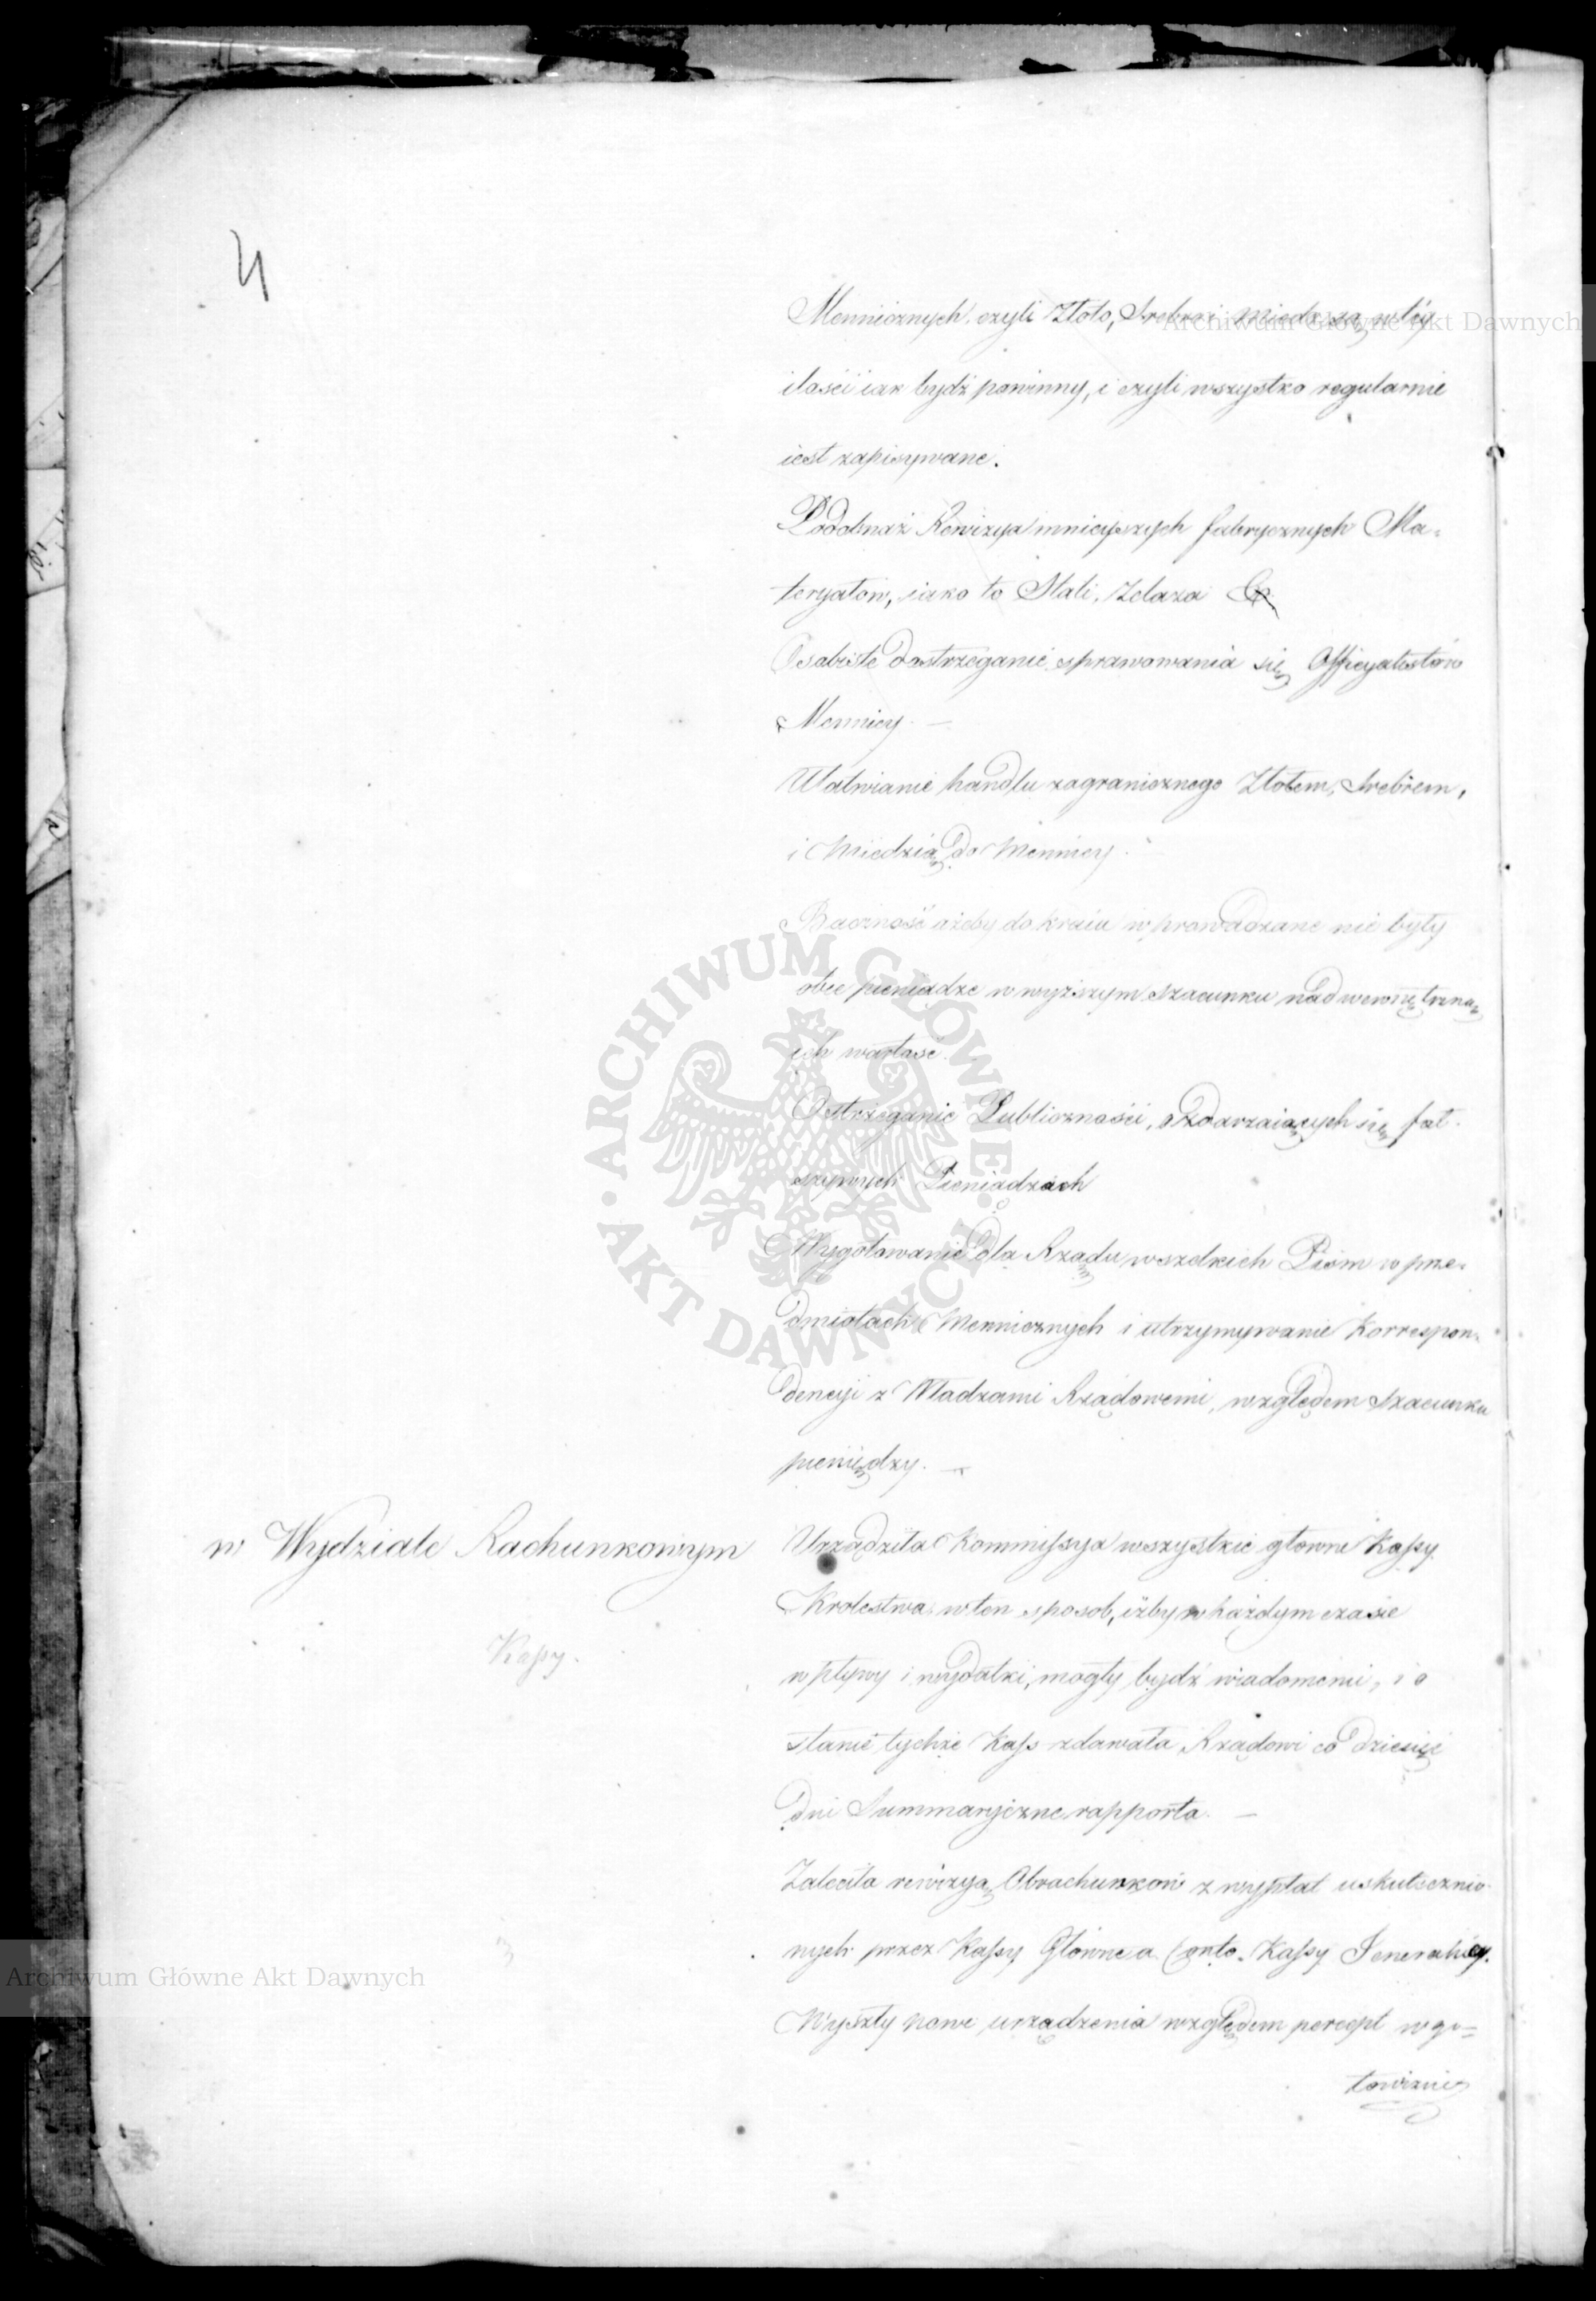 4
Mennicznych, czyli Złoto, Srebro i Miedz są w téy
ilości iak bydź powinny, i czyli wszystko regularnie
iest zapisywane.
Podobnaż Rewizya mnieyszych fabrycznych Ma-
teryałow, iako to Stali, Zelaza &
Osobiste dostrzeganie sprawowania się Officyalistów
Mennicy. —
Ułatwianie handlu zagranicznego Złotem, Srebrem,
i Miedzią do Mennicy. —
Baczność ażeby do kraiu wprowadzane nie były
obce pieniądze w wyższym szacunku nad wewnętrzną
ich wartość.
Ostrzeganie Publiczności, o zdarzaiących się fał-
szywych Pieniądzach
Wygotowanie dla Rządu wszelkich Pism w prze-
dmiotach Mennicznych i utrzymywanie Korrespon-
dencyi z Władzami Rządowemi, względem szacunku
pieniędzy. —
w Wydziale Rachunkowym
Kassy.
Urządziła Kommissya wszystkie głowne Kassy
Krolestwa w ten sposob, iżby w każdym czasie
wpływy i wydatki, mogły bydź wiadomemi, i o
stanie tychże Kass zdawała Rządowi co dziesięć
dni Summaryczne rapporta. —
Zaleciła rewizyą Obrachunkow z wypłat uskutecznio-
nych przez Kassy Główne a Conto Kassy Jeneralney.
Wyszły nowe urządzenia względem percept w go-
towiznie
ARCHIWUM GŁÓWNE AKT DAWNYCH
Archiwum Główne Akt Dawnych
Archiwum Główne Akt Dawnych